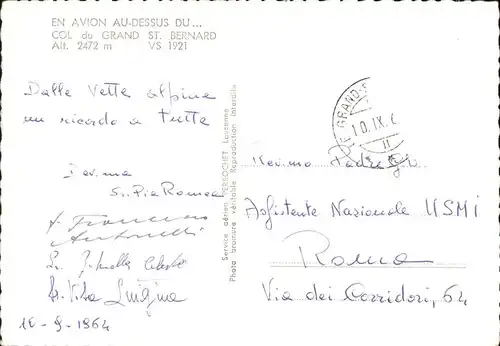 EN AVION AU-DESSUS DU...
COL du GRAND ST. BERNARD
Alt. 2472 m VS 1921
Dalle Vette alpine
un ricordo a tutte
Sr. Pia Roma
Antonelli
Luigina
10-9-1964
Service aérien PERROCHET, Lausanne
Photo bromure véritable Reproduction interdite
GRAND-S
10.IX.6
Rev.imo Padre
Assistente Nazionale USMI
Roma
Via dei Corridori, 64